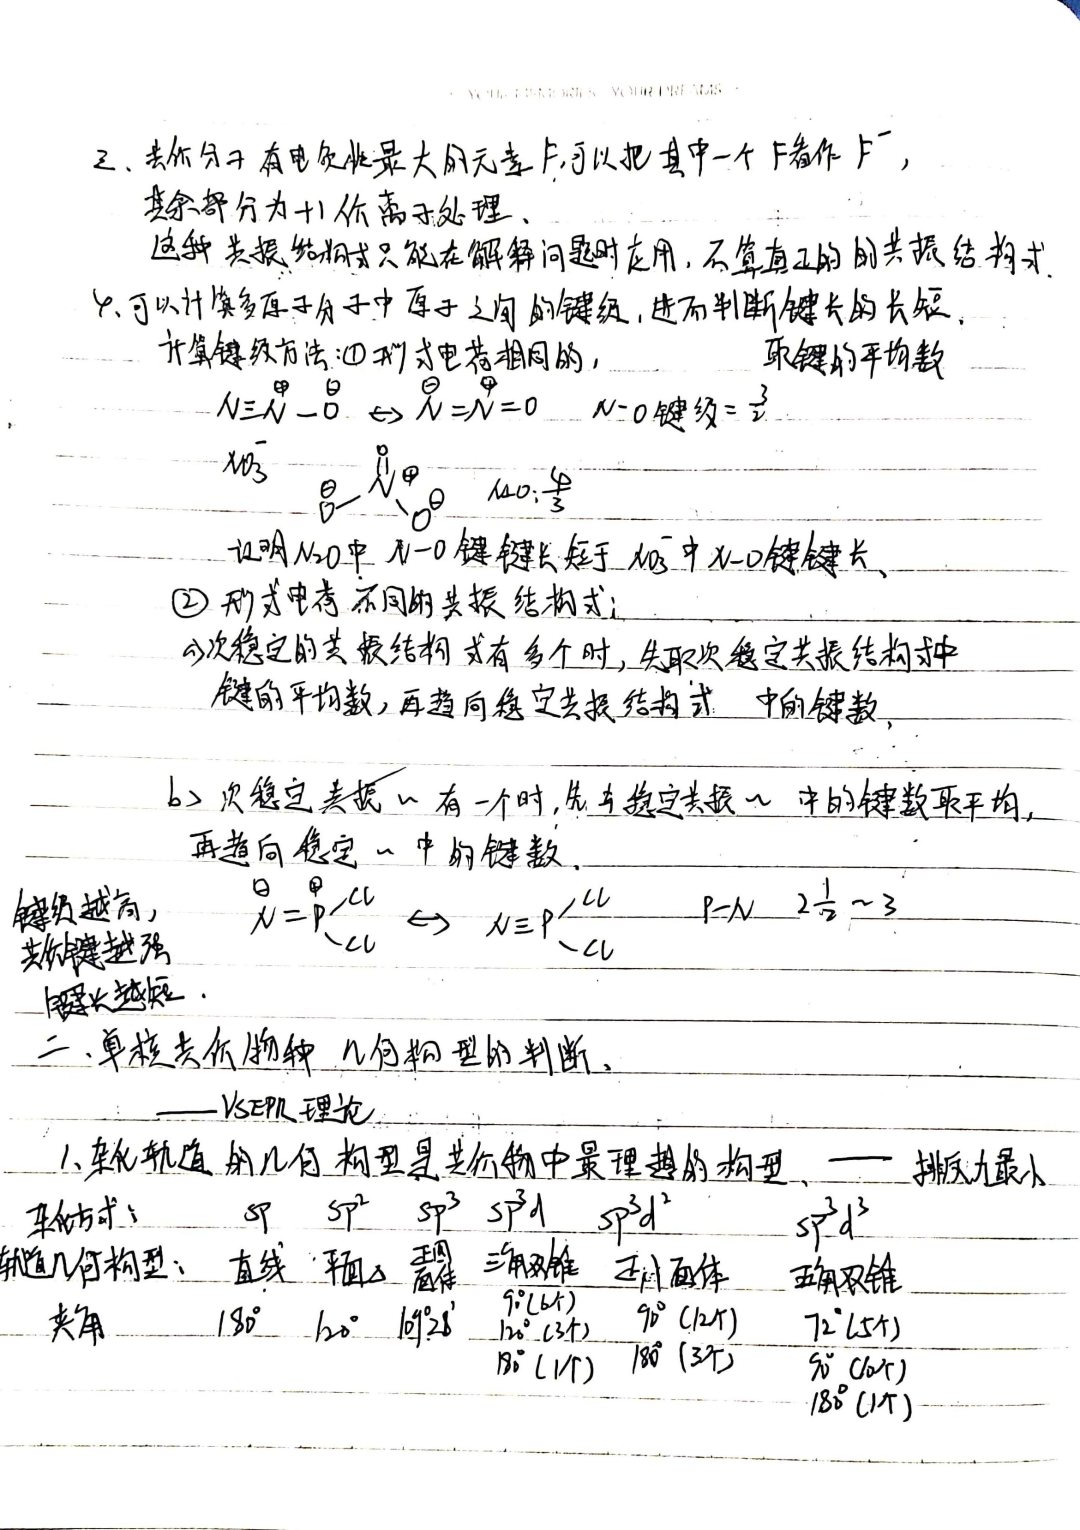 YOUR MEMORIES YOUR DREAMS
三、共价分子有电负性最大的元素F,可以把其中一个F看作F⁻,
其余部分为+1价离子处理、
这种共振结构式只能在解释问题时应用,不算真正的的共振结构式.
4、可以计算多原子分子中原子之间的键级,进而判断键长的长短、
计算键级方法:① 形式电荷相同的, 取键的平均数
N≡N⊕—O⊖ ↔ N⊖=N⊕=O N-O键级=3/2
NO₃⁻ O N⊕ O⊖ O⊖ N-O:4/3
证明N₂O中 N-O键键长短于NO₃⁻中N-O键键长、
② 形式电荷不同的共振结构式;
a>次稳定的共振结构式有多个时,先取次稳定共振结构式中
键的平均数,再趋向稳定共振结构式 中的键数、
b> 次稳定共振~有一个时,先与稳定共振~中的键数取平均,
再趋向稳定~中的键数、
N⊖=P⊕ Cl Cl ↔ N≡P Cl Cl P-N 2½~3
键级越高,
共价键越强
键长越短.
二、单核共价物种 几何构型的判断、
——VSEPR理论
1、杂化轨道的几何构型是共价物中最理想的构型、—— 排斥力最小
杂化方式: sp sp² sp³ sp³d sp³d² sp³d³
轨道几何构型: 直线 平面△ 正四面体 三角双锥 正八面体 五角双锥
夹角 180° 120° 109°28′ 90°(6个) 90°(12个) 72°(5个)
120°(3个) 180°(3个) 90°(10个)
180°(1个) 180°(1个)